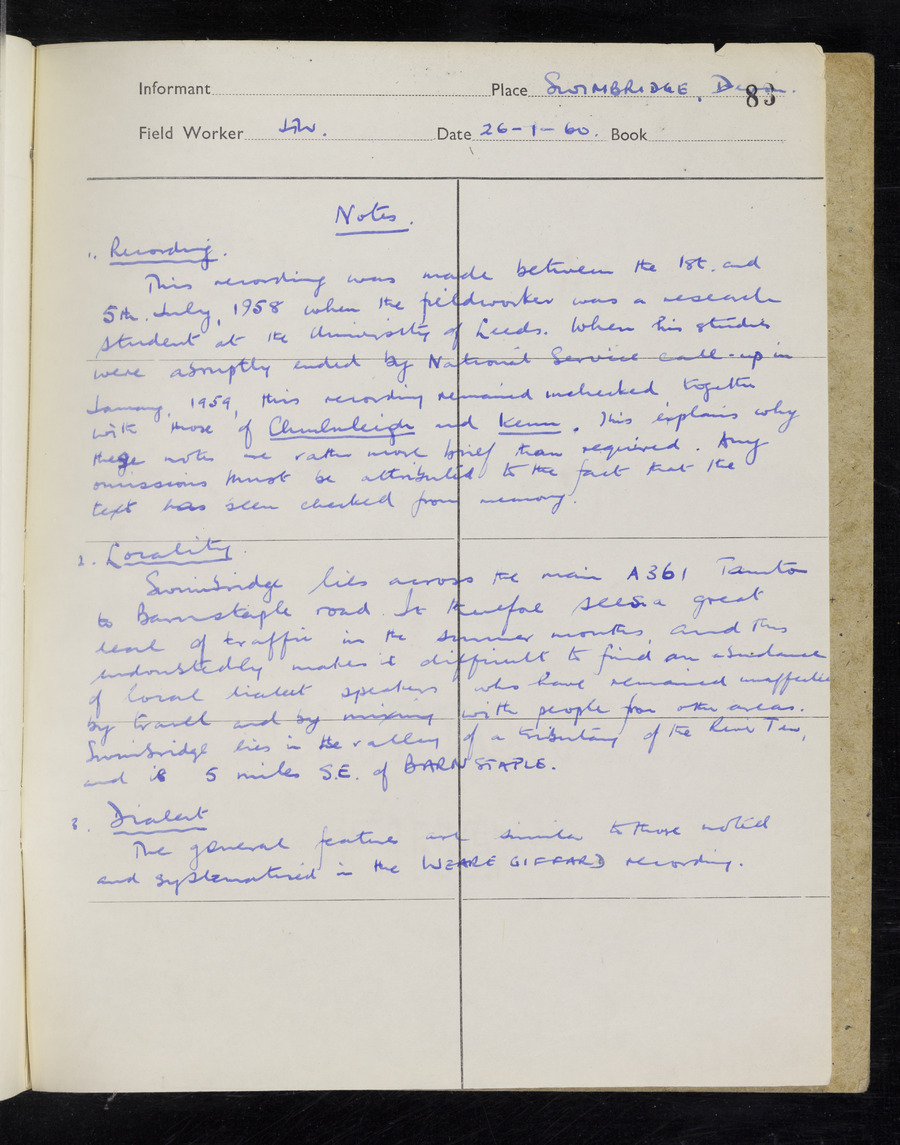 Informant Place SWIMBRIDGE, Devon.
83
Field Worker Date 26-1-60. Book
Notes.
1. Recording.
This recording was made between the 1st. and
5th. July, 1958 when the fieldworker was a research
student at the University of Leeds. When his studies
were abruptly ended by National Service call-up in
January, 1959, this recording remained unchecked together
with those of Chulmleigh and Kenn. This explains why
these notes are rather more brief than required. Any
omissions must be attributed to the fact that the
text has been checked from memory.
2. Locality.
Swimbridge lies across the main A361 Taunton
to Barnstaple road. It therefore sees a great
deal of traffic in the summer months, and this
undoubtedly makes it difficult to find an abundance
of local dialect speakers who have remained unaffected
by travel and by mixing with people from other areas.
Swimbridge lies in the valley of a tributary of the River Taw,
and is 5 miles S.E. of BARNSTAPLE.
3. Dialect
The general features are similar to those noted
and systematised in the WEARE GIFFARD recording.